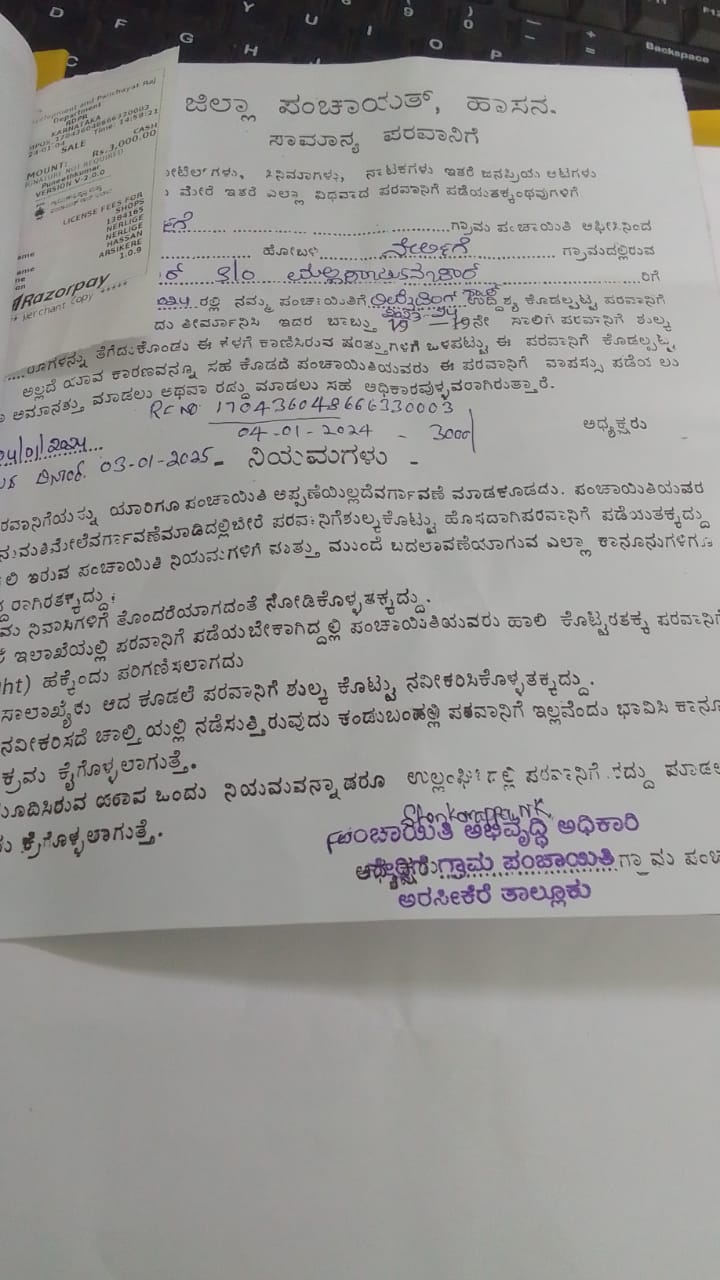 Development and Panchayat Raj
Department
RDPR
KARNATAKA
24-01-04 Time: 14:58:21
SALE CASH
AMOUNT: Rs.3,000.00
SIGNATURE NOT REQUIRED
Puneethkumar
VERSION V-2.0.0
LICENSE FEES FOR
SHOPS
1384185
NERLIGE
NERLIGE
HASSAN
ARSIKERE
1.0.9
Razorpay
Merchant Copy
ಜಿಲ್ಲಾ ಪಂಚಾಯತ್, ಹಾಸನ.
ಸಾಮಾನ್ಯ ಪರವಾನಿಗೆ
ಸಿನಿಮಾಗಳು, ನಾಟಕಗಳು ಇತರೆ ಜನಪ್ರಿಯ ಆಟಗಳು
ಮೇರೆ ಇತರೆ ಎಲ್ಲಾ ವಿಧವಾದ ಪರವಾನಿಗೆ ಪಡೆಯತಕ್ಕಂಥವುಗಳಿಗೆ
ಗ್ರಾಮ ಪಂಚಾಯಿತಿ ಆಫೀಸಿನಿಂದ
ಹೋಬಳಿ ನೇರ್ಲಿಗೆ ಗ್ರಾಮದಲ್ಲಿರುವ
S/o ರಿಗೆ
ರಲ್ಲಿ ನಮ್ಮ ಪಂಚಾಯಿತಿಗೆ ಉದ್ದಿಶ್ಯ ಕೊಡಲ್ಪಟ್ಟ ಪರವಾನಿಗೆ
ದು ತೀರ್ಮಾನಿಸಿ ಇದರ ಬಾಬ್ತು 19 —19ನೇ ಸಾಲಿಗೆ ಪರವಾನಿಗೆ ಶುಲ್ಕ
ರೂಗಳನ್ನು ತೆಗೆದುಕೊಂಡು ಈ ಕೆಳಗೆ ಕಾಣಿಸಿರುವ ಷರತ್ತುಗಳಿಗೆ ಒಳಪಟ್ಟು ಈ ಪರವಾನಿಗೆ ಕೊಡಲ್ಪಟ್ಟಿ
ಅಲ್ಲದೆ ಯಾವ ಕಾರಣವನ್ನೂ ಸಹ ಕೊಡದೆ ಪಂಚಾಯಿತಿಯವರು ಈ ಪರವಾನಿಗೆ ವಾಪಸ್ಸು ಪಡೆಯಲು
ಅಮಾನತ್ತು ಮಾಡಲು ಅಥವಾ ರದ್ದು ಮಾಡಲು ಸಹ ಅಧಿಕಾರವುಳ್ಳವರಾಗಿರುತ್ತಾರೆ.
RC NO 170436048666330003
04-01-2024 - 3000 ಅಧ್ಯಕ್ಷರು
04/01/2024
ದಿನಾಂಕ. 03-01-2025 - ನಿಯಮಗಳು -
ಯಾರಿಗೂ ಪಂಚಾಯಿತಿ ಅಪ್ಪಣೆಯಿಲ್ಲದೆ ವರ್ಗಾವಣೆ ಮಾಡಕೂಡದು. ಪಂಚಾಯಿತಿಯವರ
ನುಮತಿಮೇಲೆವರ್ಗಾವಣೆಮಾಡಿದಲ್ಲಿಬೇರೆ ಪರವಾನಿಗೆಶುಲ್ಕಕೊಟ್ಟು ಹೊಸದಾಗಿಪರವಾನಿಗೆ ಪಡೆಯತಕ್ಕದ್ದು
ಲಿ ಇರುವ ಪಂಚಾಯಿತಿ ನಿಯಮಗಳಿಗೆ ಮತ್ತು ಮುಂದೆ ಬದಲಾವಣೆಯಾಗುವ ಎಲ್ಲಾ ಕಾನೂನುಗಳಿಗೂ
ದ್ದರಾಗಿರತಕ್ಕದ್ದು.
ಮ ನಿವಾಸಿಗಳಿಗೆ ತೊಂದರೆಯಾಗದಂತೆ ನೋಡಿಕೊಳ್ಳತಕ್ಕದ್ದು.
ಇಲಾಖೆಯಲ್ಲಿ ಪರವಾನಿಗೆ ಪಡೆಯಬೇಕಾಗಿದ್ದಲ್ಲಿ ಪಂಚಾಯಿತಿಯವರು ಹಾಲಿ ಕೊಟ್ಟಿರತಕ್ಕ ಪರವಾನಿಗೆ
ht) ಹಕ್ಕೆಂದು ಪರಿಗಣಿಸಲಾಗದು
ಸಾಲಾಖೈರು ಆದ ಕೂಡಲೆ ಪರವಾನಿಗೆ ಶುಲ್ಕ ಕೊಟ್ಟು ನವೀಕರಿಸಿಕೊಳ್ಳತಕ್ಕದ್ದು.
ನವೀಕರಿಸದೆ ಚಾಲ್ತಿಯಲ್ಲಿ ನಡೆಸುತ್ತಿರುವುದು ಕಂಡುಬಂದಲ್ಲಿ ಪರವಾನಿಗೆ ಇಲ್ಲವೆಂದು ಭಾವಿಸಿ ಕಾನೂ
ಕ್ರಮ ಕೈಗೊಳ್ಳಲಾಗುತ್ತೆ.
ಸೂದಿಸಿರುವ ಯಾವ ಒಂದು ನಿಯಮವನ್ನಾದರೂ ಉಲ್ಲಂಘಿಸಿದಲ್ಲಿ ಪರವಾನಿಗೆ ರದ್ದು ಮಾಡಲ
ಕೈಗೊಳ್ಳಲಾಗುತ್ತೆ.
ಪಂಚಾಯಿತಿ ಅಭಿವೃದ್ಧಿ ಅಧಿಕಾರಿ
ಗ್ರಾಮ ಪಂಚಾಯಿತಿ ಗ್ರಾಮ ಪಂಚಾ
ಅರಸೀಕೆರೆ ತಾಲ್ಲೂಕು